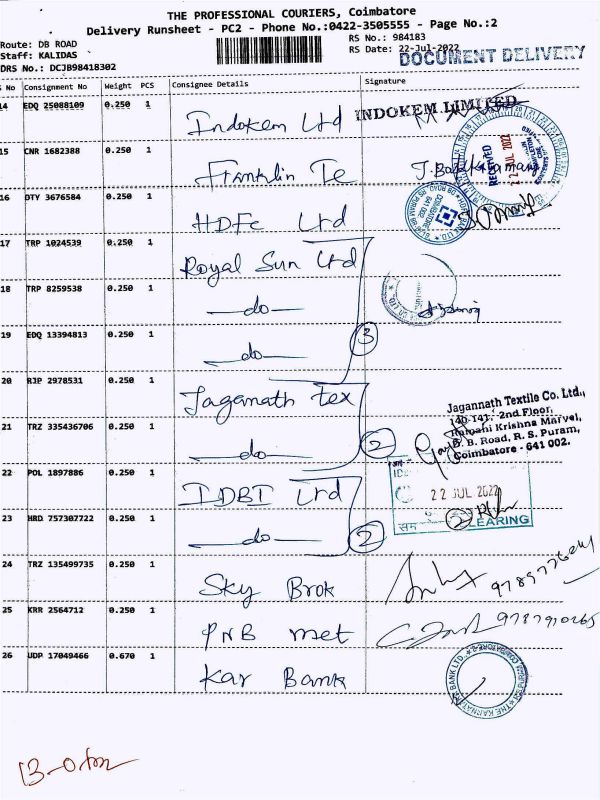 THE PROFESSIONAL COURIERS, Coimbatore
Delivery Runsheet - PC2 - Phone No.:0422-3505555 - Page No.:2
Route: DB ROAD
RS No.: 984183
Staff: KALIDAS
RS Date: 22-Jul-2022
DOCUMENT DELIVERY
DRS No.: DCJB98418302
No Consignment No Weight PCS Consignee Details Signature
14 EDQ 25088109 0.250 1 Indokem Ltd INDOKEM LIMITED
15 CNR 1682388 0.250 1 Franklin Te
RECEIVED
16 DTY 3676584 0.250 1 HDFC Ltd
17 TRP 1024539 0.250 1 Royal Sun Ltd
18 TRP 8259538 0.250 1 do
19 EDQ 13394813 0.250 1 do
3
20 RJP 2978531 0.250 1 Jaganath Tex
Jagannath Textile Co. Ltd.,
140-141, 2nd Floor,
Krishna Marvel,
D. B. Road, R. S. Puram,
Coimbatore - 641 002.
21 TRZ 335436706 0.250 1 do
2
22 POL 1897886 0.250 1 IDBI Ltd
22 JUL 2022
CLEARING
23 HRD 757307722 0.250 1 do
2
24 TRZ 135499735 0.250 1 Sky Brok
25 KRR 2564712 0.250 1 PNB met
9787910265
26 UDP 17049466 0.670 1 Kar Bank